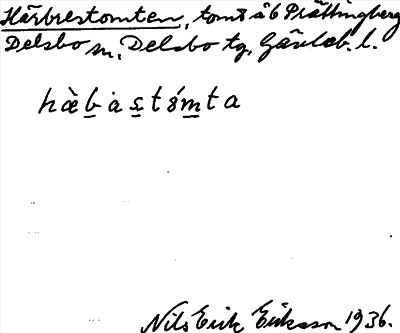 Härbrestomten, tomt å b Prästingberg
Delsbo sn, Delsbo tg, Gävleb. l.
hàb̲ȧs̲tớm̲ta
Nils Erik Eriksson 1936.